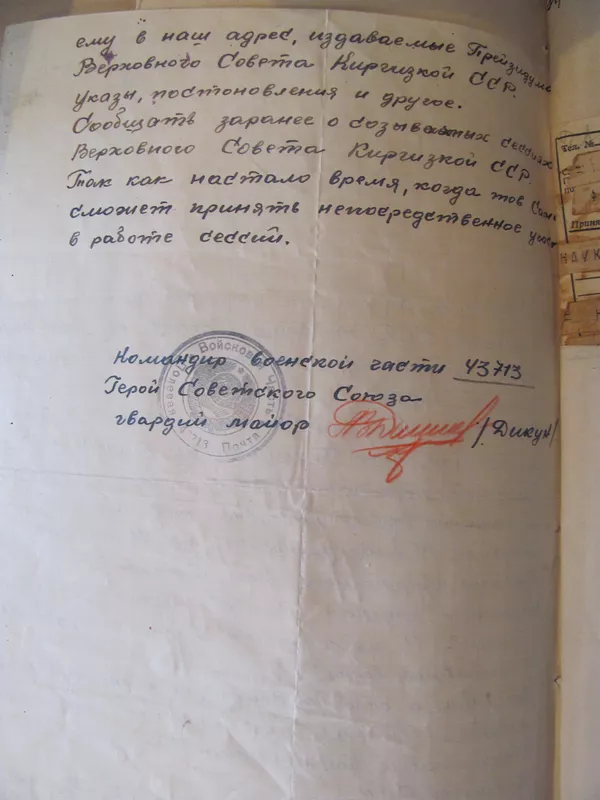 ему в наш адрес, издаваемые Президиумо
Верховного Совета Киргизкой ССР.
указы, постоновления и другое.
Сообщать заранее о созываемых сессиях
Верховного Совета Киргизкой ССР.
Так как настало время, когда тов
сможет принять непосредственное учас
в работе сессий.
Командир военской части 43713
Герой Советского Союза
гвардий майор /Дикун/
Войсковая Часть
Полевая Почта
713